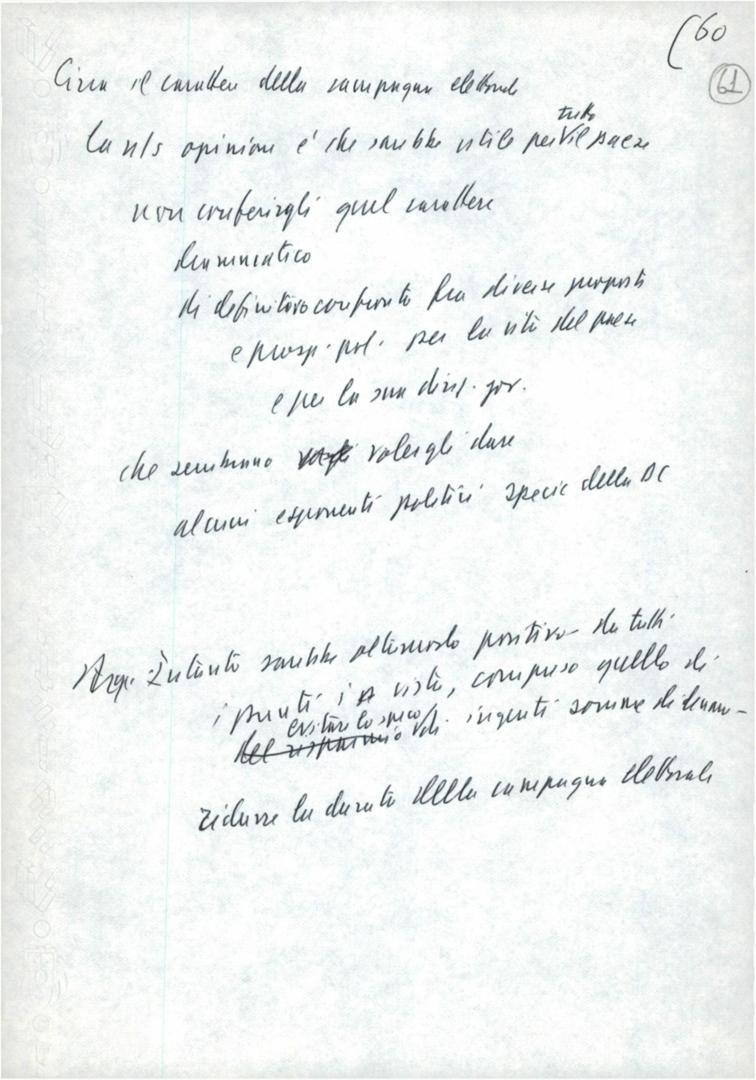 (60
61
Circa il carattere della campagna elettorale
tutto
La n/s opinione è che sarebbe utile per il paese
non conferirgli quel carattere
drammatico
di definitivo confronto fra diverse proposte
e prosp. pol. per la vita del paese
e per la sua direz. gov.
che sembrano volergli dare
alcuni esponenti politici specie della DC
Intanto sarebbe oltremodo positivo da tutti
i punti i vista, compreso quello di
evitare lo spreco
del risparmio di ingenti somme di denaro -
ridurre la durata della campagna elettorale